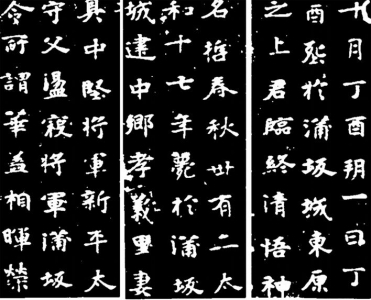 九月丁酉朔一日丁
酉葬於蒲坂城東原
之上君臨終清悟神
名哲春秋卅有二太
和十七年薨於蒲坂
城建中鄉孝義里妻
中堅將軍新平太
守父盪寇將軍蒲坂
令所謂華蓋相暉榮